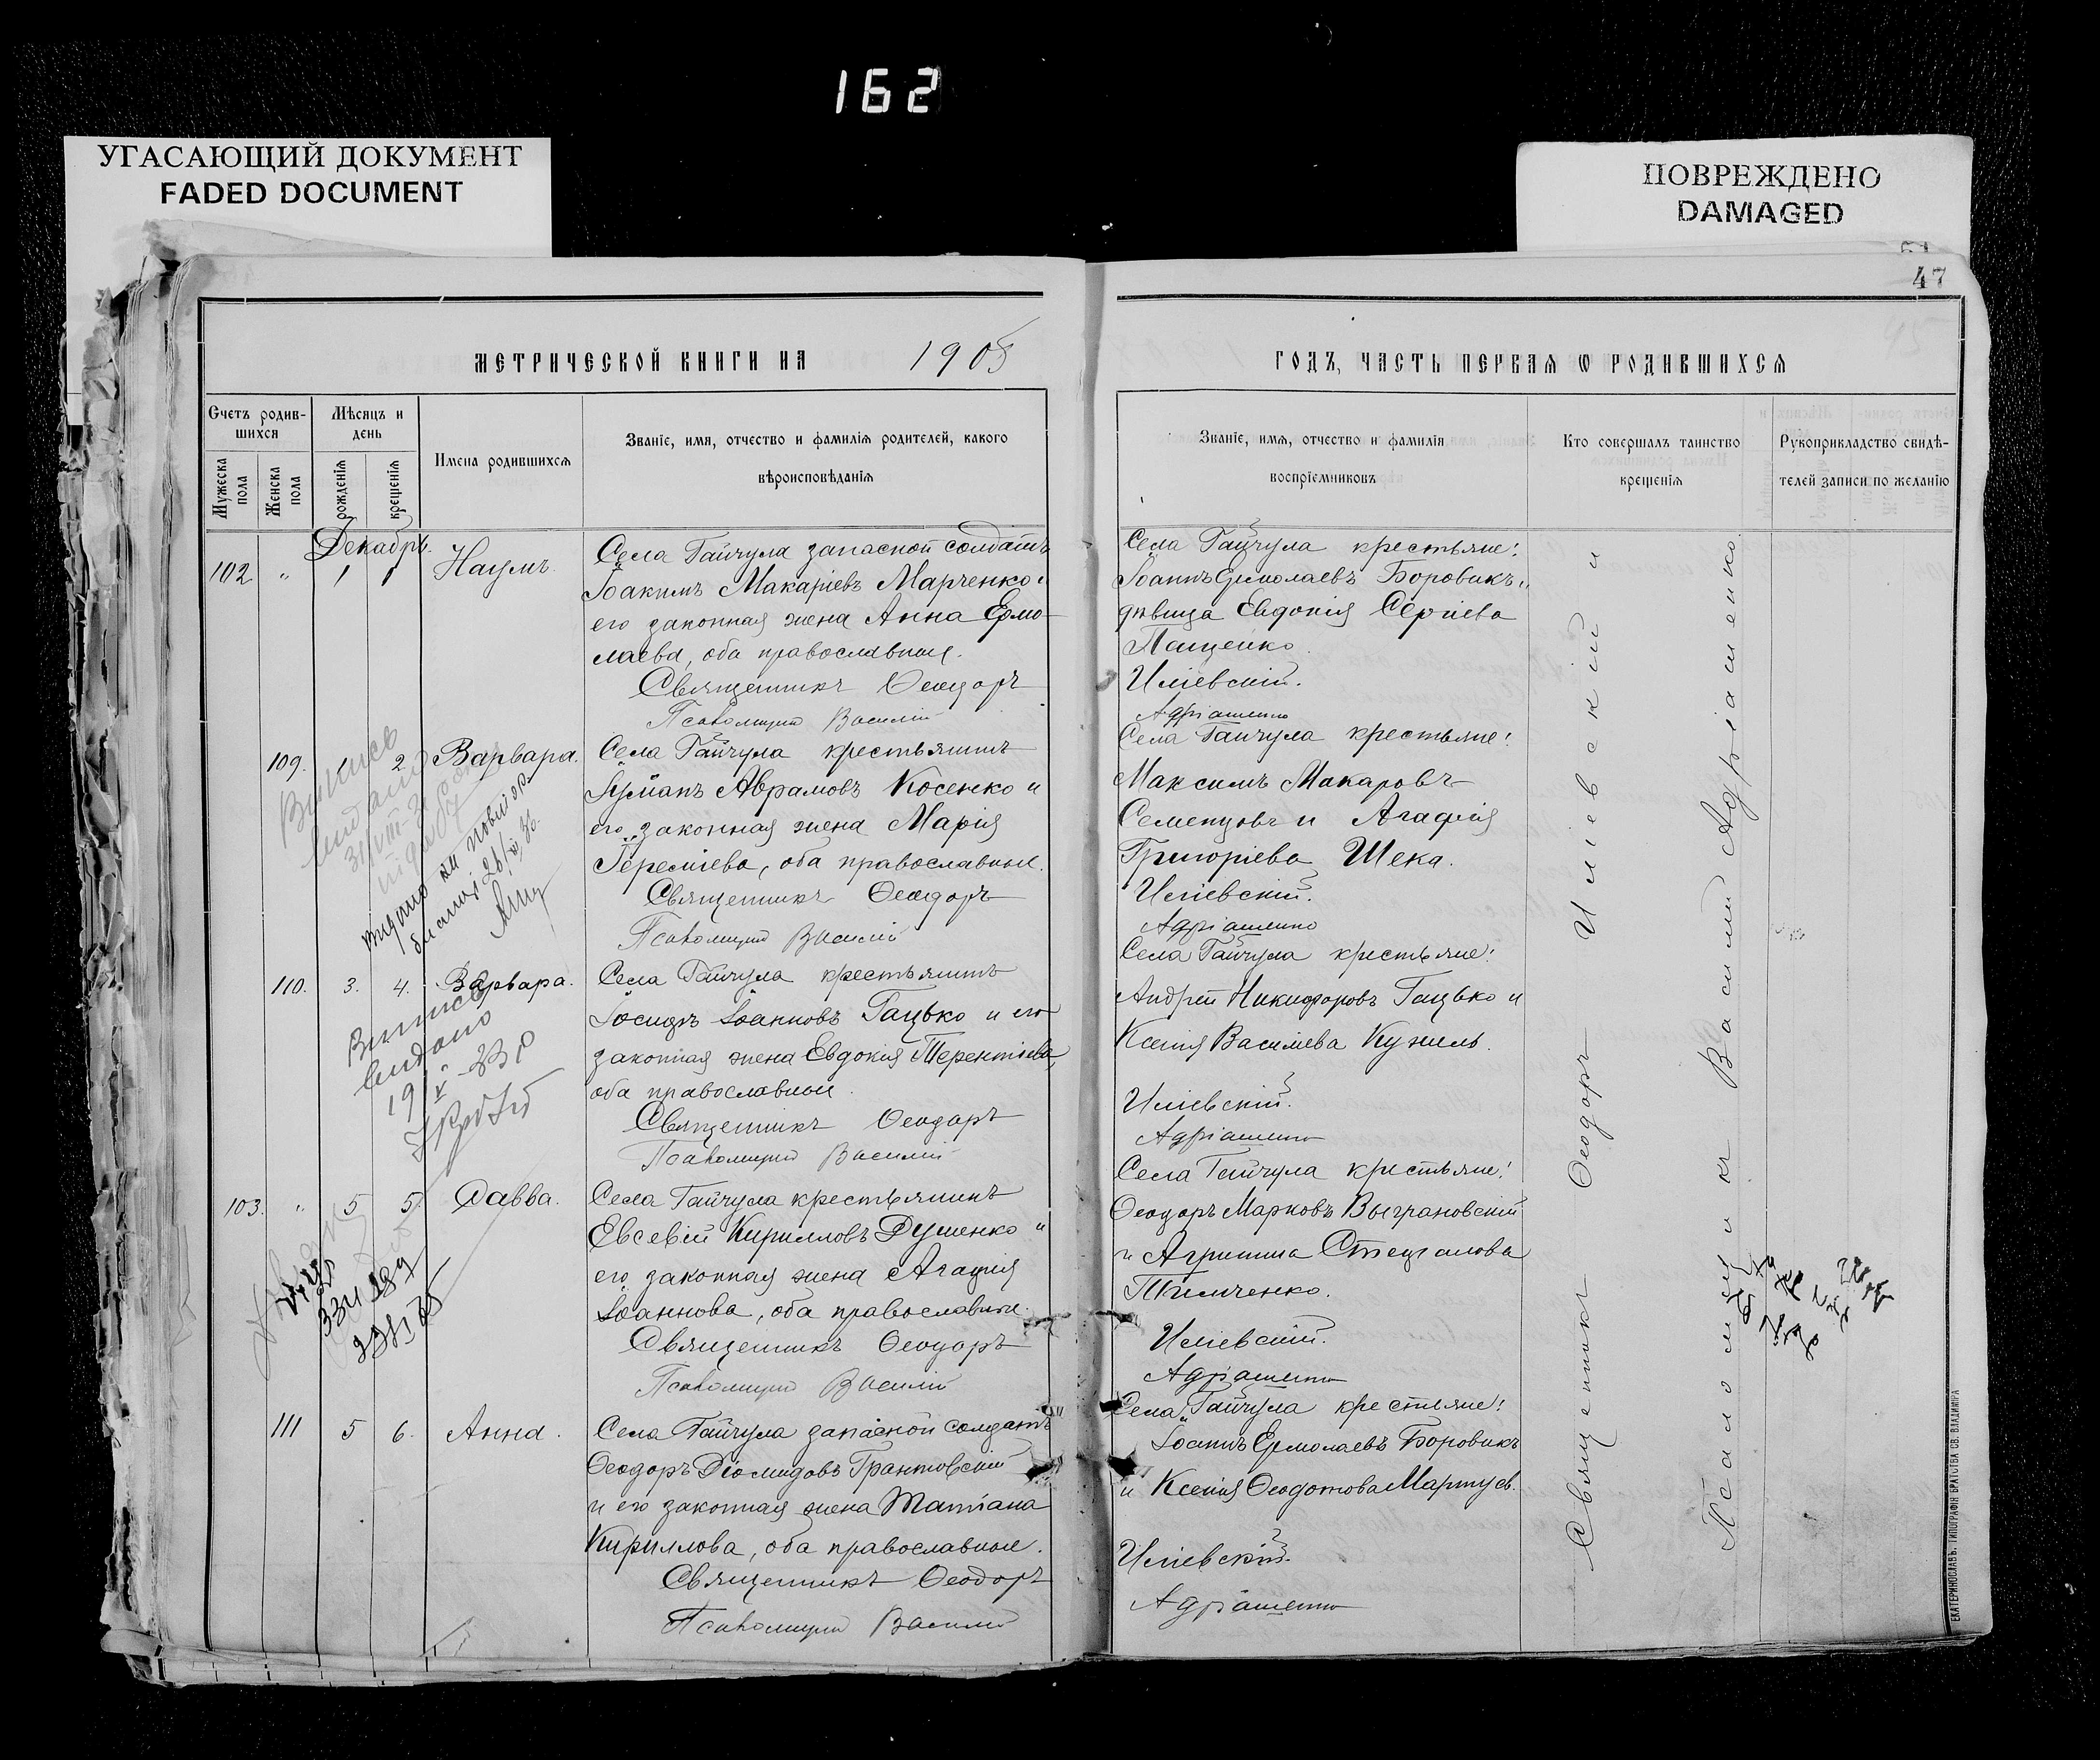 162
УГАСАЮЩИЙ ДОКУМЕНТ
FADED DOCUMENT
ПОВРЕЖДЕНО
DAMAGED
47
МЕТРИЧЕСКОЙ КНИГИ НА 1905
ГОДЪ, ЧАСТЬ ПЕРВАЯ Ѡ РОДИВШИХСЯ
Счетъ родив-
шихся
Мужеска пола
Женска пола
Мѣсяцъ и
день
рожденія
крещенія
Имена родившихся
Званіе, имя, отчество и фамилія родителей, какого
вѣроисповѣданія
Званіе, имя, отчество и фамилія
воспріемниковъ
Кто совершалъ таинство
крещенія
Рукоприкладство свидѣ-
телей записи по желанію
Декабрь.
102 " 1 1 Наумъ.
Села Гайчула запасной солдатъ
Іоакимъ Макаріевъ Марченко и
его законная жена Анна Ермо-
лаева, оба православные.
Священникъ Ѳеодоръ
Псаломщикъ Василій
Села Гайчула крестьяне:
Іоаннъ Ермолаевъ Боровикъ и
дѣвица Евдокія Сергіева
Пащенко.
Иліевскій.
Адріашенко
109. 1 2 Варвара.
Села Гайчула крестьянинъ
Іуліанъ Аврамовъ Косенко и
его законная жена Марія
Іереміева, оба православные.
Священникъ Ѳеодоръ
Псаломщикъ Василій
Села Гайчула крестьяне:
Максимъ Макаровъ
Семенцовъ и Агафія
Григоріева Шека.
Иліевскій.
Адріашенко
Выпись
110. 3. 4. Варвара.
Села Гайчула крестьянинъ
Іосифъ Іоанновъ Гацько и его
законная жена Евдокія Терентіева,
оба православные.
Священникъ Ѳеодоръ
Псаломщикъ Василій
Села Гайчула крестьяне:
Андрей Никифоровъ Гацько и
Ксенія Васильева Кужель.
Иліевскій.
Адріашенко
103. " 5 5. Савва.
Села Гайчула крестьянинъ
Евсевій Кирилловъ Душенко и
его законная жена Агафія
Іоаннова, оба православные.
Священникъ Ѳеодоръ
Псаломщикъ Василій
Села Гайчула крестьяне:
Ѳеодоръ Марковъ Выграновскій
и Агриппина Стефанова
Тимченко.
Иліевскій.
Адріашенко
111 5 6. Анна.
Села Гайчула запасной солдатъ
Ѳеодоръ Діомидовъ Грантовскій
и его законная жена Татіана
Кириллова, оба православные.
Священникъ Ѳеодоръ
Псаломщикъ Василій
Села Гайчула крестьяне:
Іоаннъ Ермолаевъ Боровикъ
и Ксенія Ѳеодотова
Иліевскій.
Адріашенко
Священникъ Ѳеодоръ Иліевскій и
Псаломщикъ Василій Адріашенко.
ЕКАТЕРИНОСЛАВЪ. ТИПОГРАФІЯ БРАТСТВА СВ. ВЛАДИМІРА